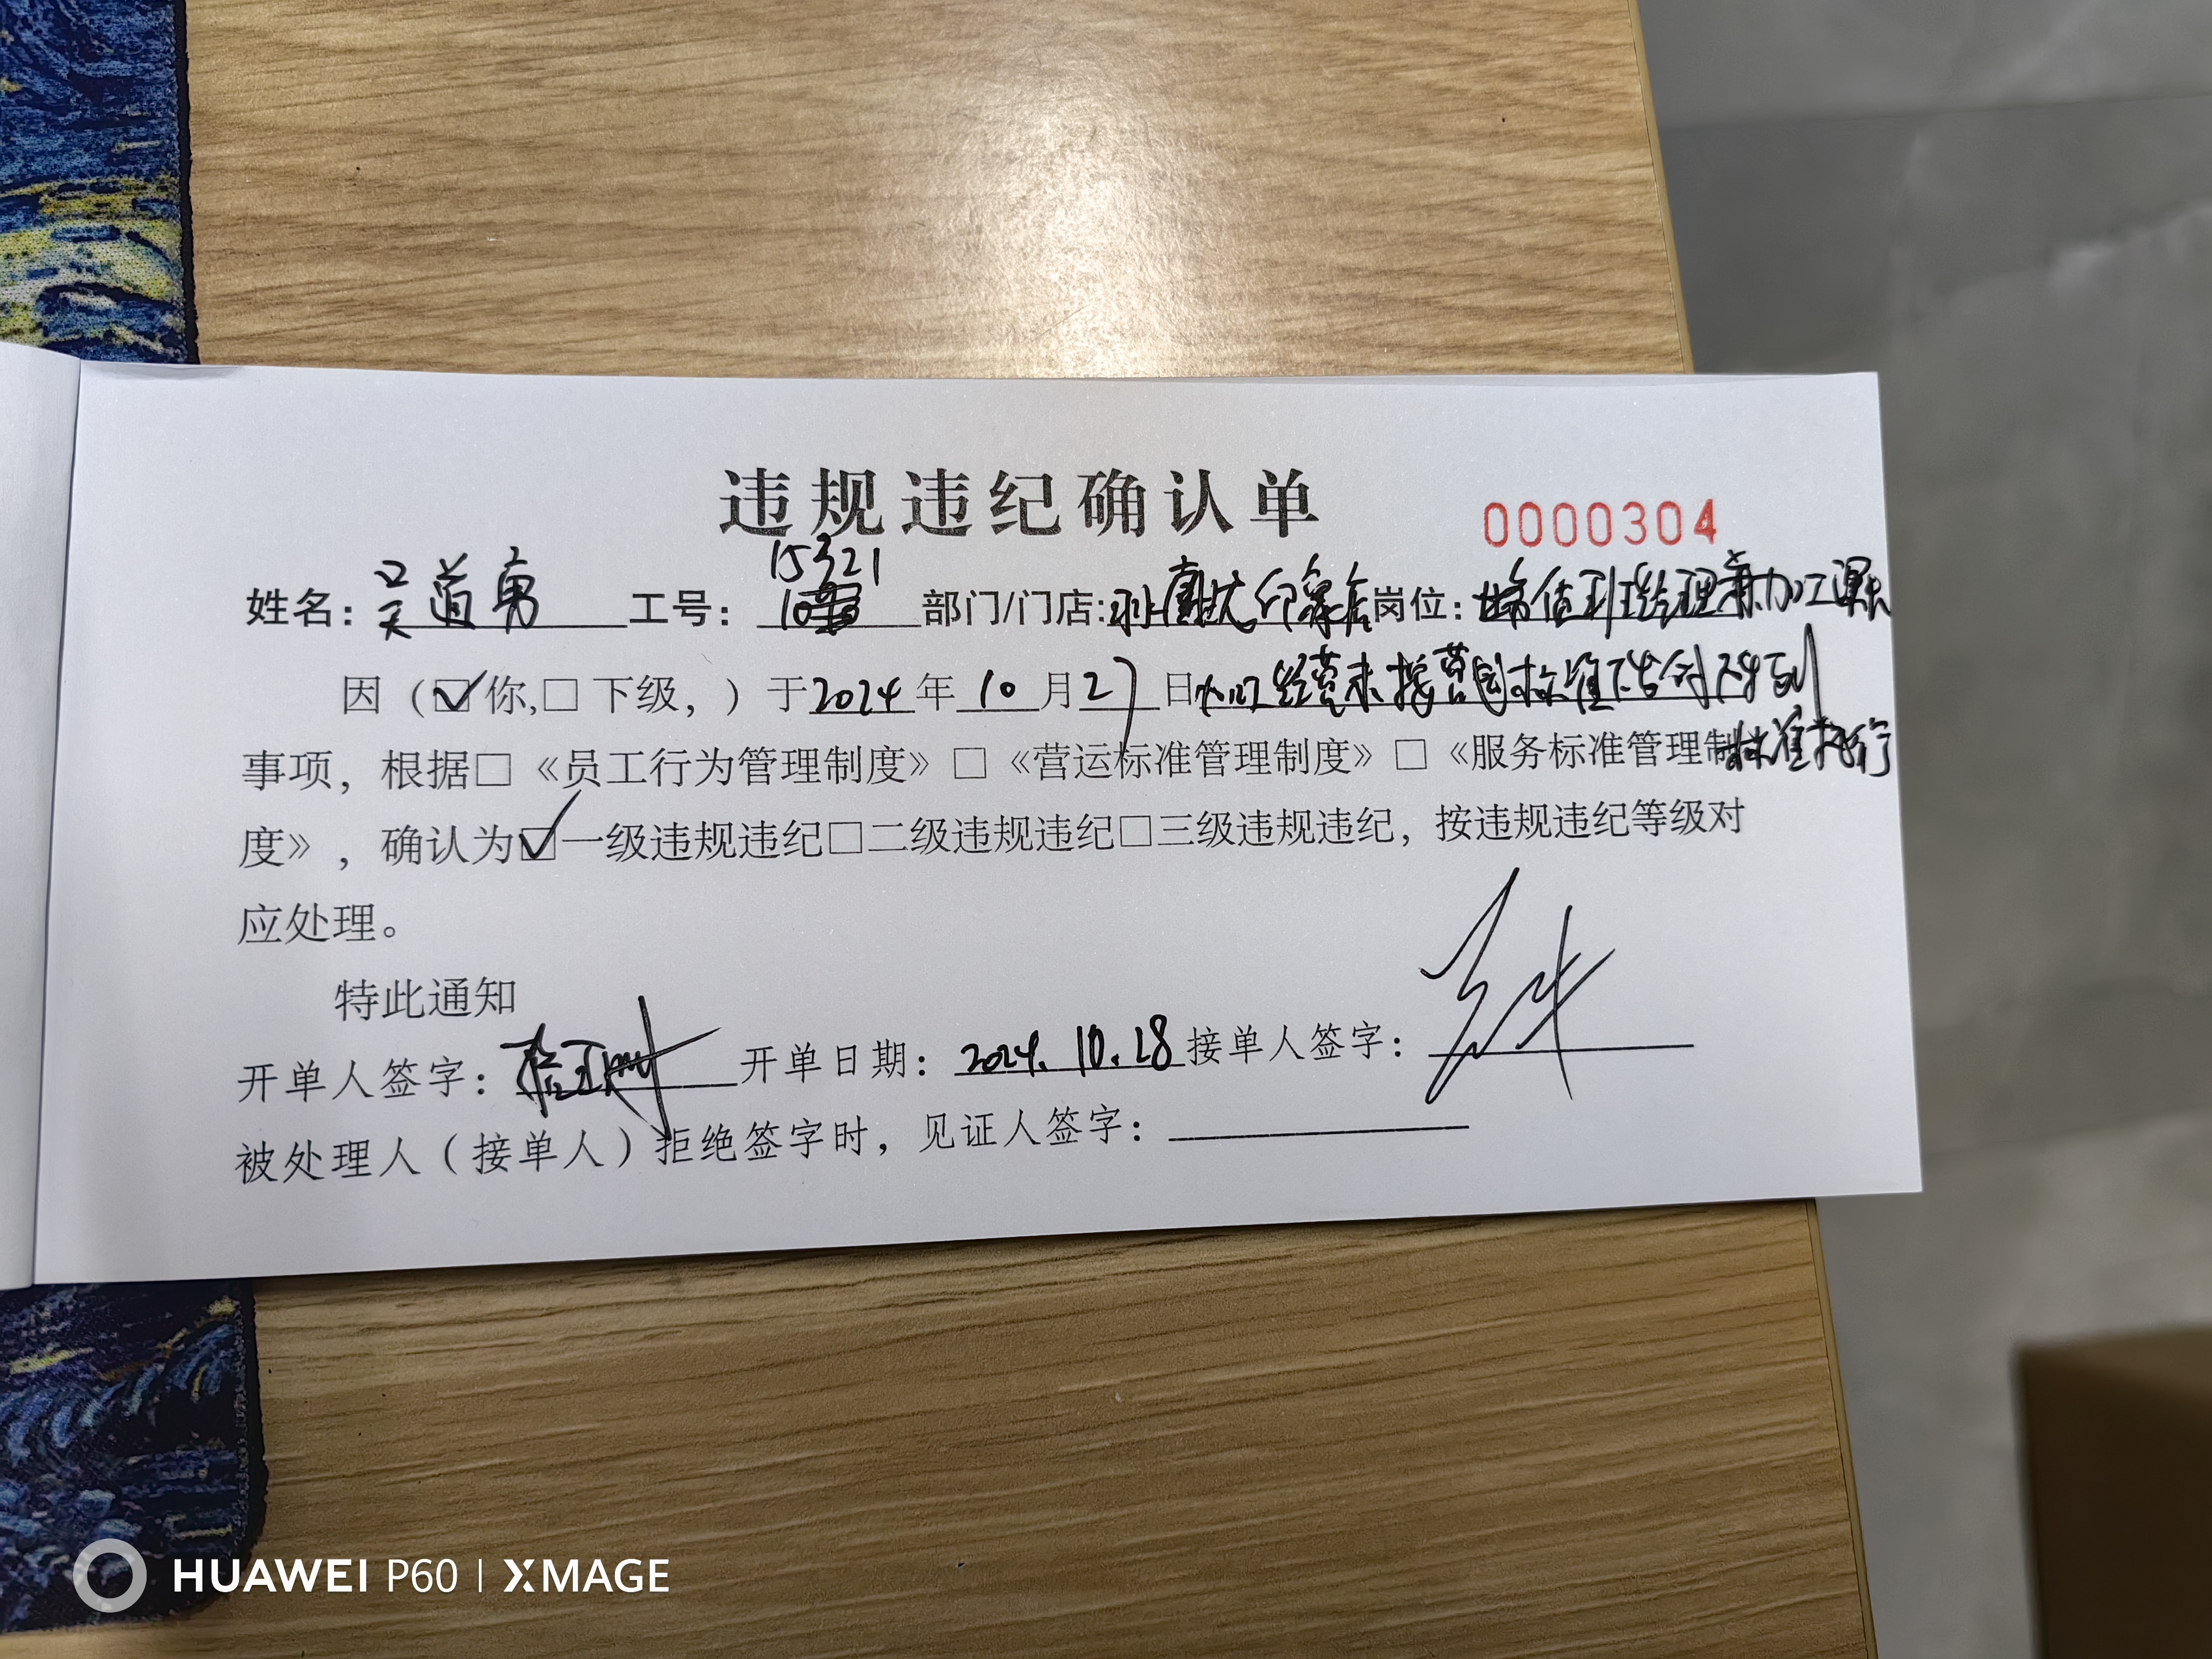 违规违纪确认单
0000304
姓名：吴道勇 工号：15321 部门/门店： 印象店 岗位： 值班经理兼加工课长
因（☑你,□下级，）于2024年10月27日 经营未按营运标准 下发到
标准执行
事项，根据□《员工行为管理制度》□《营运标准管理制度》□《服务标准管理制
度》，确认为☑一级违规违纪□二级违规违纪□三级违规违纪，按违规违纪等级对
应处理。
特此通知
开单人签字： 开单日期：2024.10.28 接单人签字：
被处理人（接单人）拒绝签字时，见证人签字：
HUAWEI P60 | XMAGE